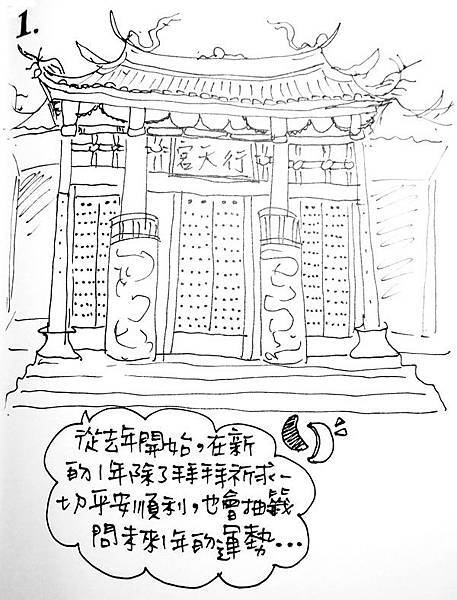 1.
宮天行
從去年開始,在新
的1年除了拜拜祈求一
切平安順利,也會抽籤
問未來1年的運勢...